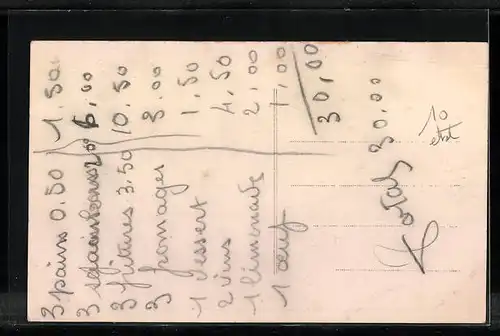 3 pains 0.50 1,50
3 2.00 6,00
3 fritures 3.50 10,50
3 fromages 3.00
1 dessert 1,50
2 vins 4,50
1 limonade 2,00
1 oeuf 1,00
30,00
Total 30,00
10